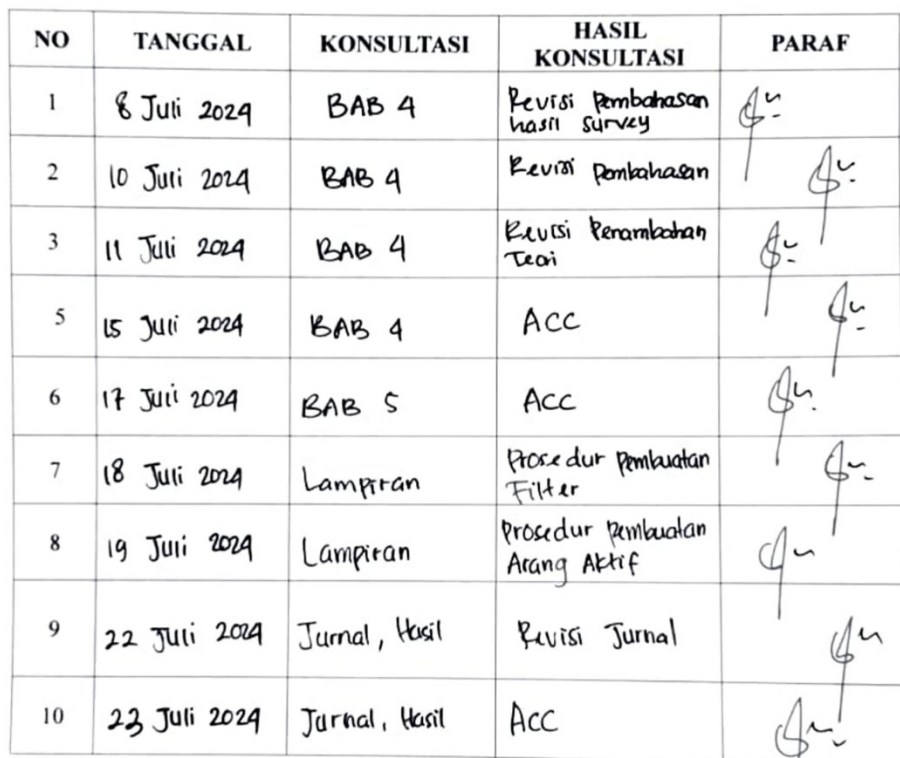 NO TANGGAL KONSULTASI HASIL KONSULTASI PARAF
1 8 Juli 2024 BAB 4 Revisi Pembahasan
hasil survey
2 10 Juli 2024 BAB 4 Revisi Pembahasan
3 11 Juli 2024 BAB 4 Revisi Penambahan
Teori
5 15 Juli 2024 BAB 4 ACC
6 17 Juli 2024 BAB 5 ACC
7 18 Juli 2024 Lampiran Prosedur Pembuatan
Filter
8 19 Juli 2024 Lampiran Prosedur Pembuatan
Arang Aktif
9 22 Juli 2024 Jurnal, Hasil Revisi Jurnal
10 23 Juli 2024 Jurnal, Hasil Acc